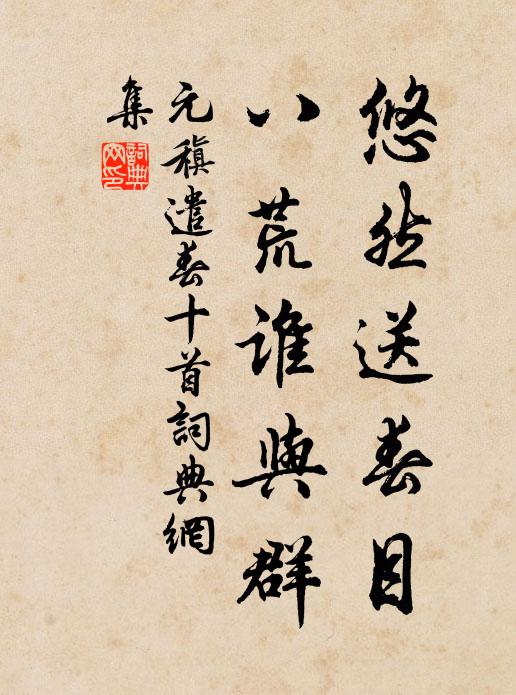 悠然送春目
八荒誰與群
元稹遣春十首詞典網
集
詞典
网印